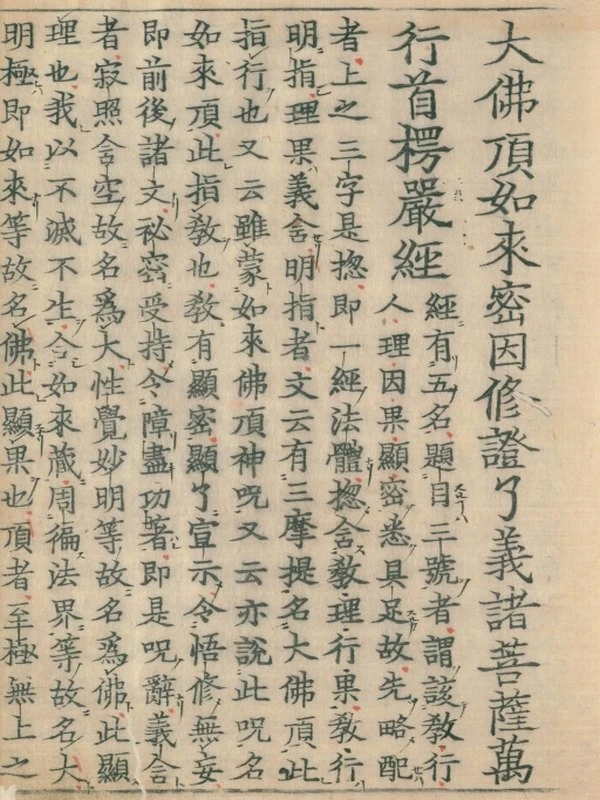 大佛頂如來密因修證了義諸菩薩萬
行首楞嚴經
經有五名題目三號者謂該敎行
人理因果顯密悉具足故先略配
者上之三字是揔即一經法體揔含敎理行果敎行
明指理果義含明指者文云有三摩提名大佛頂此
指行也又云雖蒙如來佛頂神呪又云亦說此呪名
如來頂此指敎也敎有顯密顯了宣示令悟修無妄
即前後諸文秘密受持令障盡功著即是呪辭義含
者寂照含空故名爲大性覺妙明等故名爲佛此顯
理也我以不滅不生合如來藏周徧法界等故名大
明極即如來等故名佛此顯果也頂者至極無上之